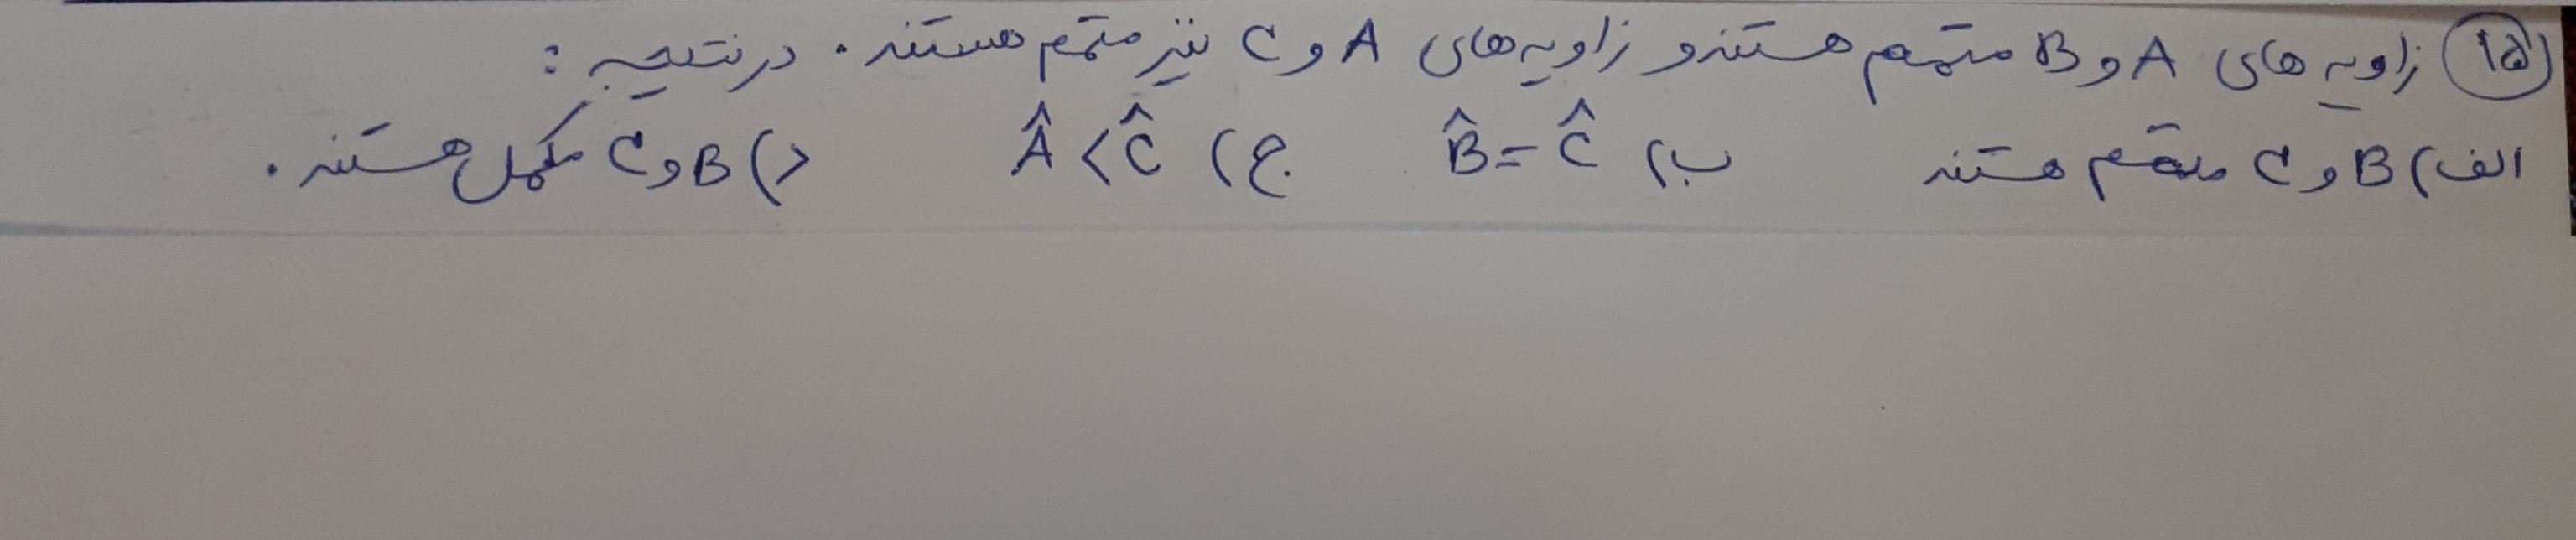 ۱۵ زاویه های A و B متمم هستند و زاویه های A و C نیز متمم هستند. در نتیجه :
الف) B و C متمم هستند ب) B̂ = Ĉ ج) Â < Ĉ د) B و C مکمل هستند.